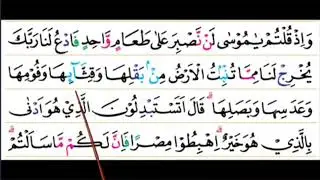 وَاِذْ قُلْتُمْ يٰمُوْسٰى لَنْ نَّصْبِرَ عَلٰى طَعَامٍ وَّاحِدٍ فَادْعُ لَنَا رَبَّكَ
يُخْرِجْ لَنَا مِمَّا تُنْۢبِتُ الْاَرْضُ مِنْۢ بَقْلِهَا وَقِثَّآىِٕهَا وَفُوْمِهَا
وَعَدَسِهَا وَبَصَلِهَاؕ قَالَ اَتَسْتَبْدِلُوْنَ الَّذِيْ هُوَ اَدْنٰى
بِالَّذِيْ هُوَ خَيْرٌؕ اِهْبِطُوْا مِصْرًا فَاِنَّ لَكُمْ مَّا سَاَلْتُمْؕ